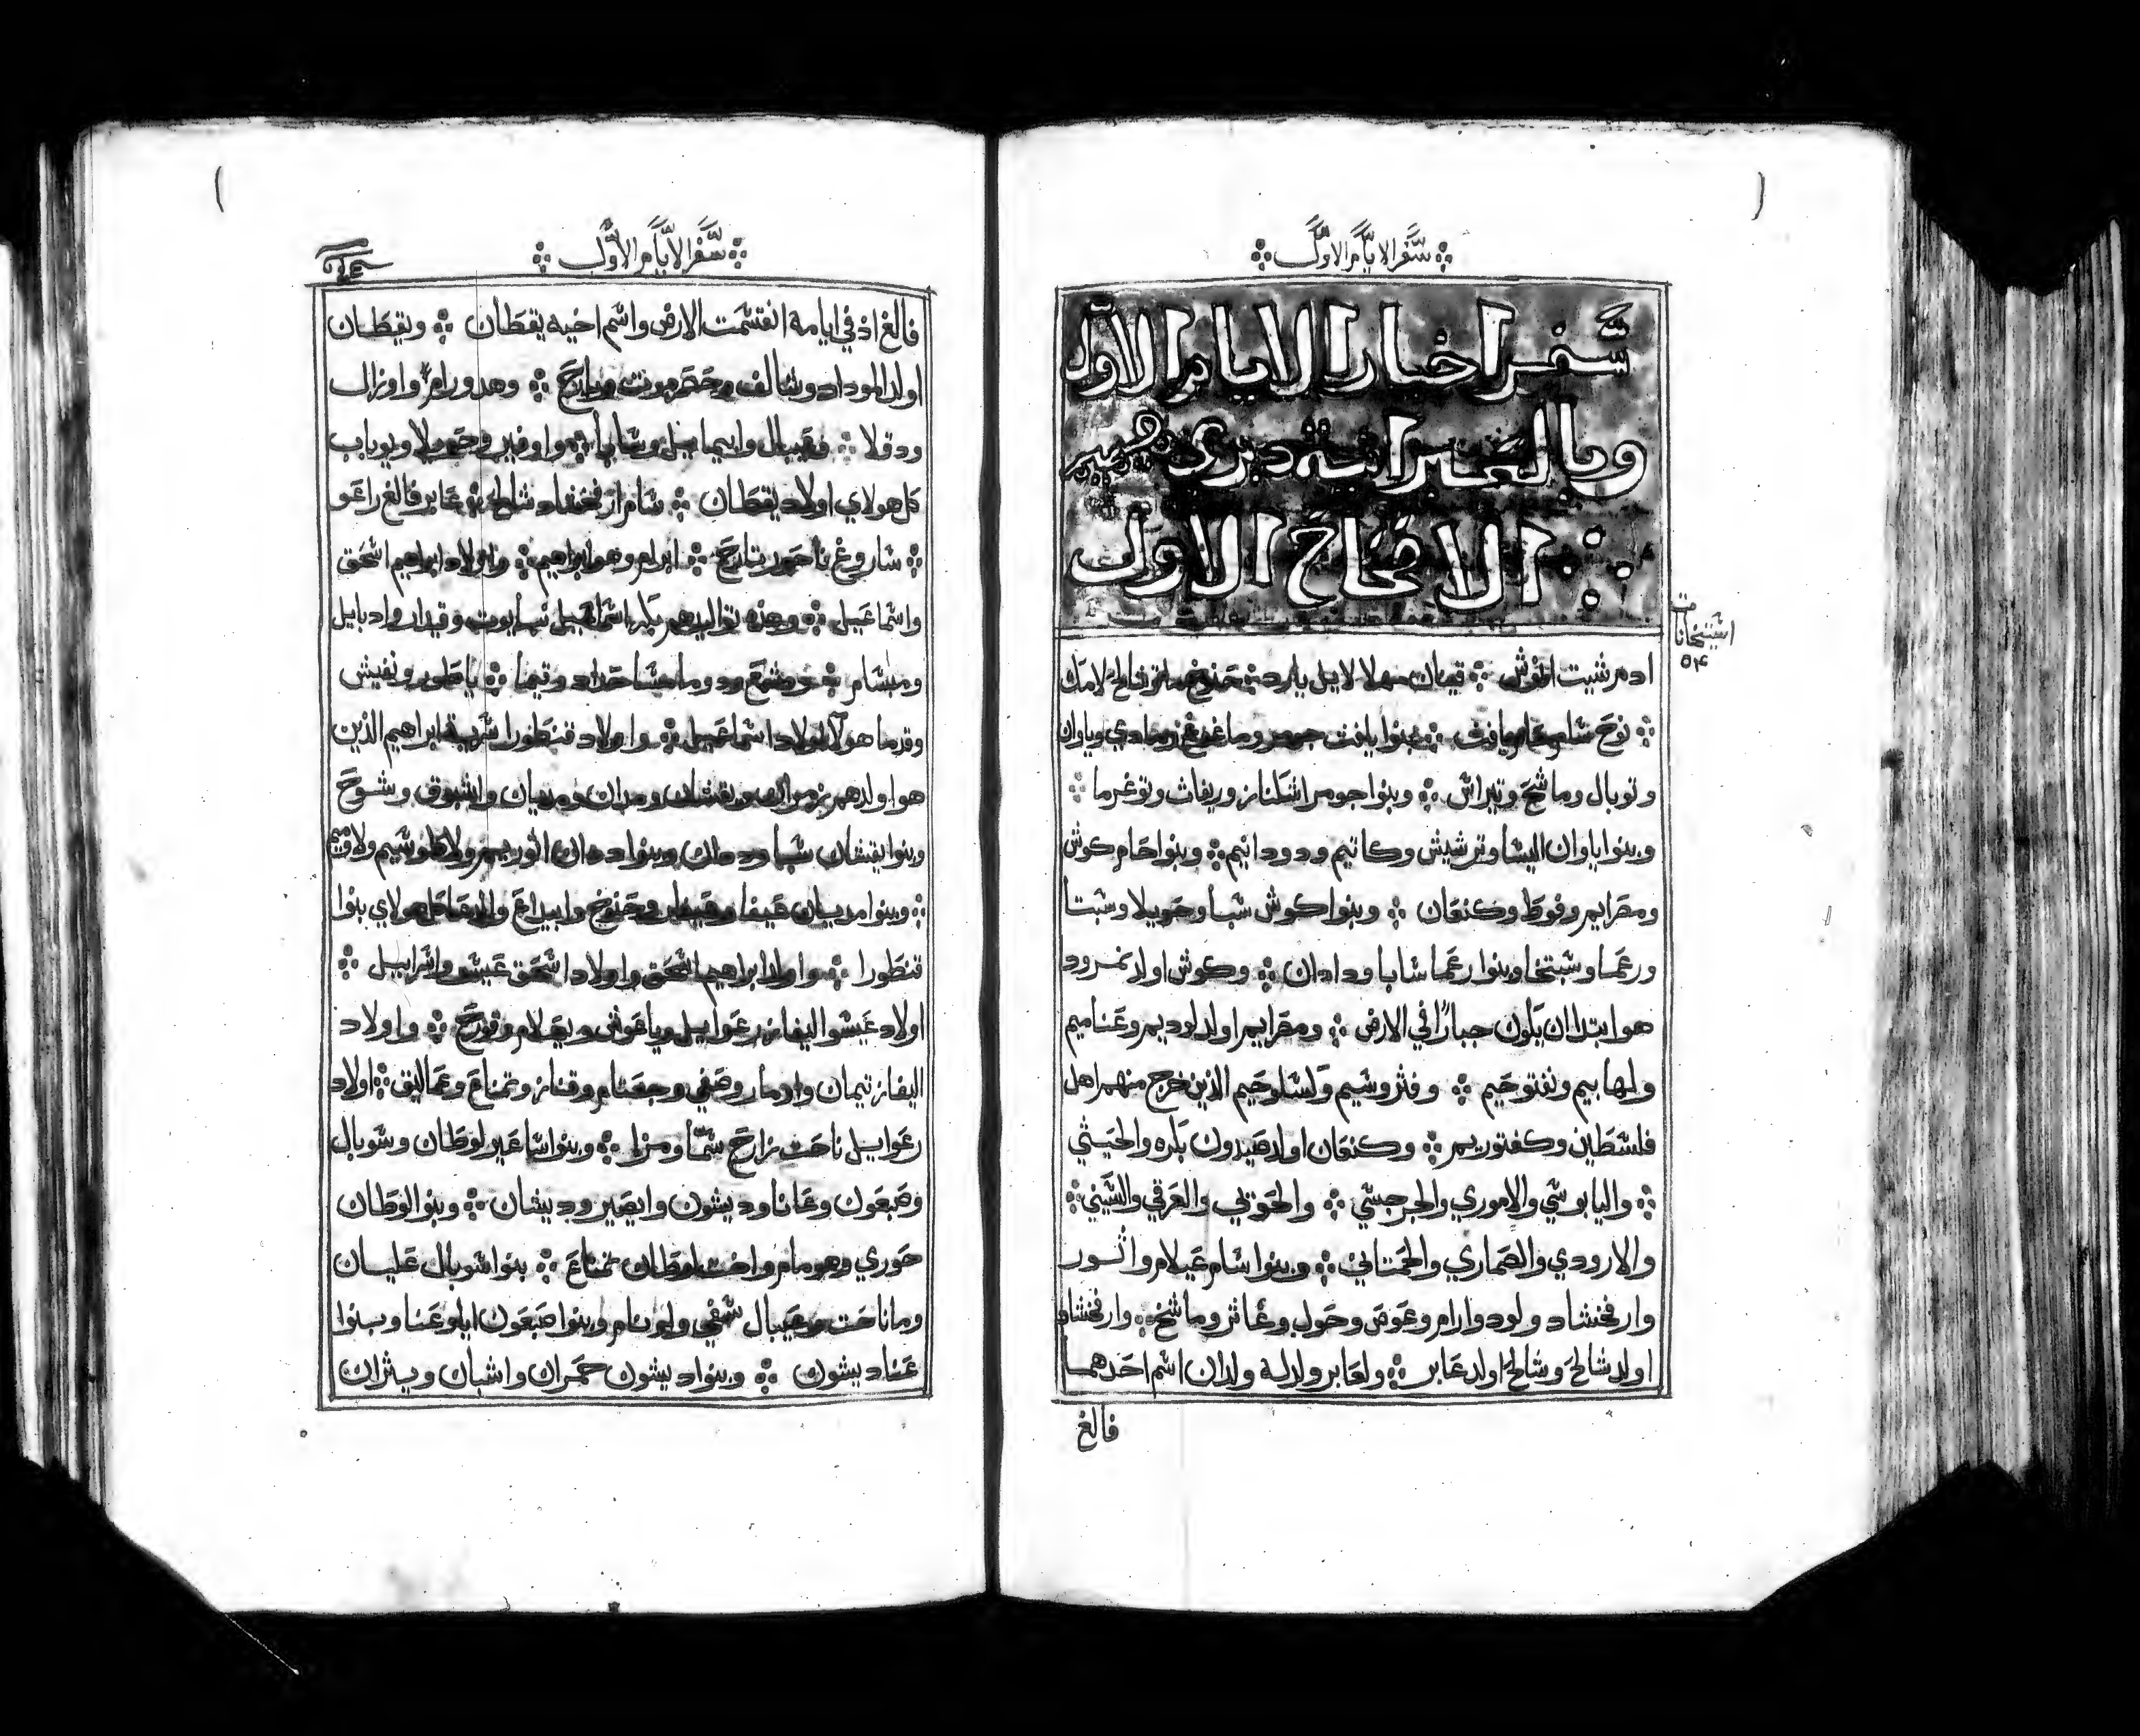 سفر الايام الاول
سفر اخبار الايام الاول
وبالعبرانية دبري
الاصحاح الاول
ادم شيث انوش قينان مهلالاييل يارد حنوخ متوشالح لامك
نوح شام حام يافث بنوا يافث جومر وماغوغ ومادي وياوان
وتوبال وماشخ وتيراس وبنوا جومر اشكناز وريفاث وتوغرما
وبنوا ياوان اليشا وترشيش وكاتيم ودودانيم وبنوا حام كوش
ومصرايم وفوط وكنعان وبنوا كوش شبا وحويلا وسبتا
ورعما وسبتخا وبنوا رعما شابا ودادان وكوش اولد نمرود
هو ابتدا ان يكون جبارا في الارض ومصرايم اولد لوديم وعناميم
ولهابيم ونفتوحيم وفثروسيم وكسلوحيم الذين خرج منهم اهل
فلسطين وكفتوريم وكنعان اولد صيدون بكره والحيثي
واليابوسي والاموري والجرجسي والحوي والعرقي والسيني
والارودي والصماري والحماتي وبنوا سام عيلام واثور
وارفخشاد ولود وارام وعوص وحول وغاثر وماشخ وارفخشاد
اولد شالح وشالح اولد عابر ولعابر ولد له ولدان اسم احدهما
فالغ
سفر الايام الاول
فالغ اذ في ايامه انقسمت الارض واسم اخيه يقطان ويقطان
اولد الموداد وشالف وحضرموت ويارح وهدورام واوزال
ودقلا وعيبال وابيمايل وشابا واوفير وحويلا ويوباب
كل هولاي اولاد يقطان شام ارفخشاد شالح عابر فالغ راعو
شاروغ ناحور تارح ابرام وهو ابراهيم واولاد ابراهيم اسحق
واسماعيل وهذه تواليدهم بكر اسماعيل نبايوت وقيدار وادبايل
ومبسام ومشمع ودوما ومسا حداد وتيما ياطور ونفيش
وقدما هولا اولاد اسماعيل واولاد قنطورا سرية ابراهيم الذين
هو اولدهم زمران ويقشان ومدان ومديان واشبوق وشوح
وبنوا يقشان شبا وددان وبنوا ددان اثوريم ولاطوشيم ولاوميم
وبنوا مديان عيفا وعيفر وحنوخ وابيداع والدعا كل هولاي بنوا
قنطورا واولد ابراهيم اسحق واولاد اسحق عيسو واسراييل
اولاد عيسو اليفاز رعواييل وياعوش ويعلام وقورح واولاد
اليفاز تيمان واومار وصفي وجعثام وقناز وتمناع وعماليق اولاد
رعواييل ناحث زارح شما ومزا وبنوا ساعير لوطان وشوبال
وصبعون وعانا وديشون وايصير وديشان وبنوا لوطان
حوري وهومام واخت لوطان تمناع بنوا شوبال عليان
وماناحت وعيبال شفي واونام وبنوا صبعون ايا وعنا وبنوا
عنا ديشون وبنوا ديشون حمران واشبان ويثران